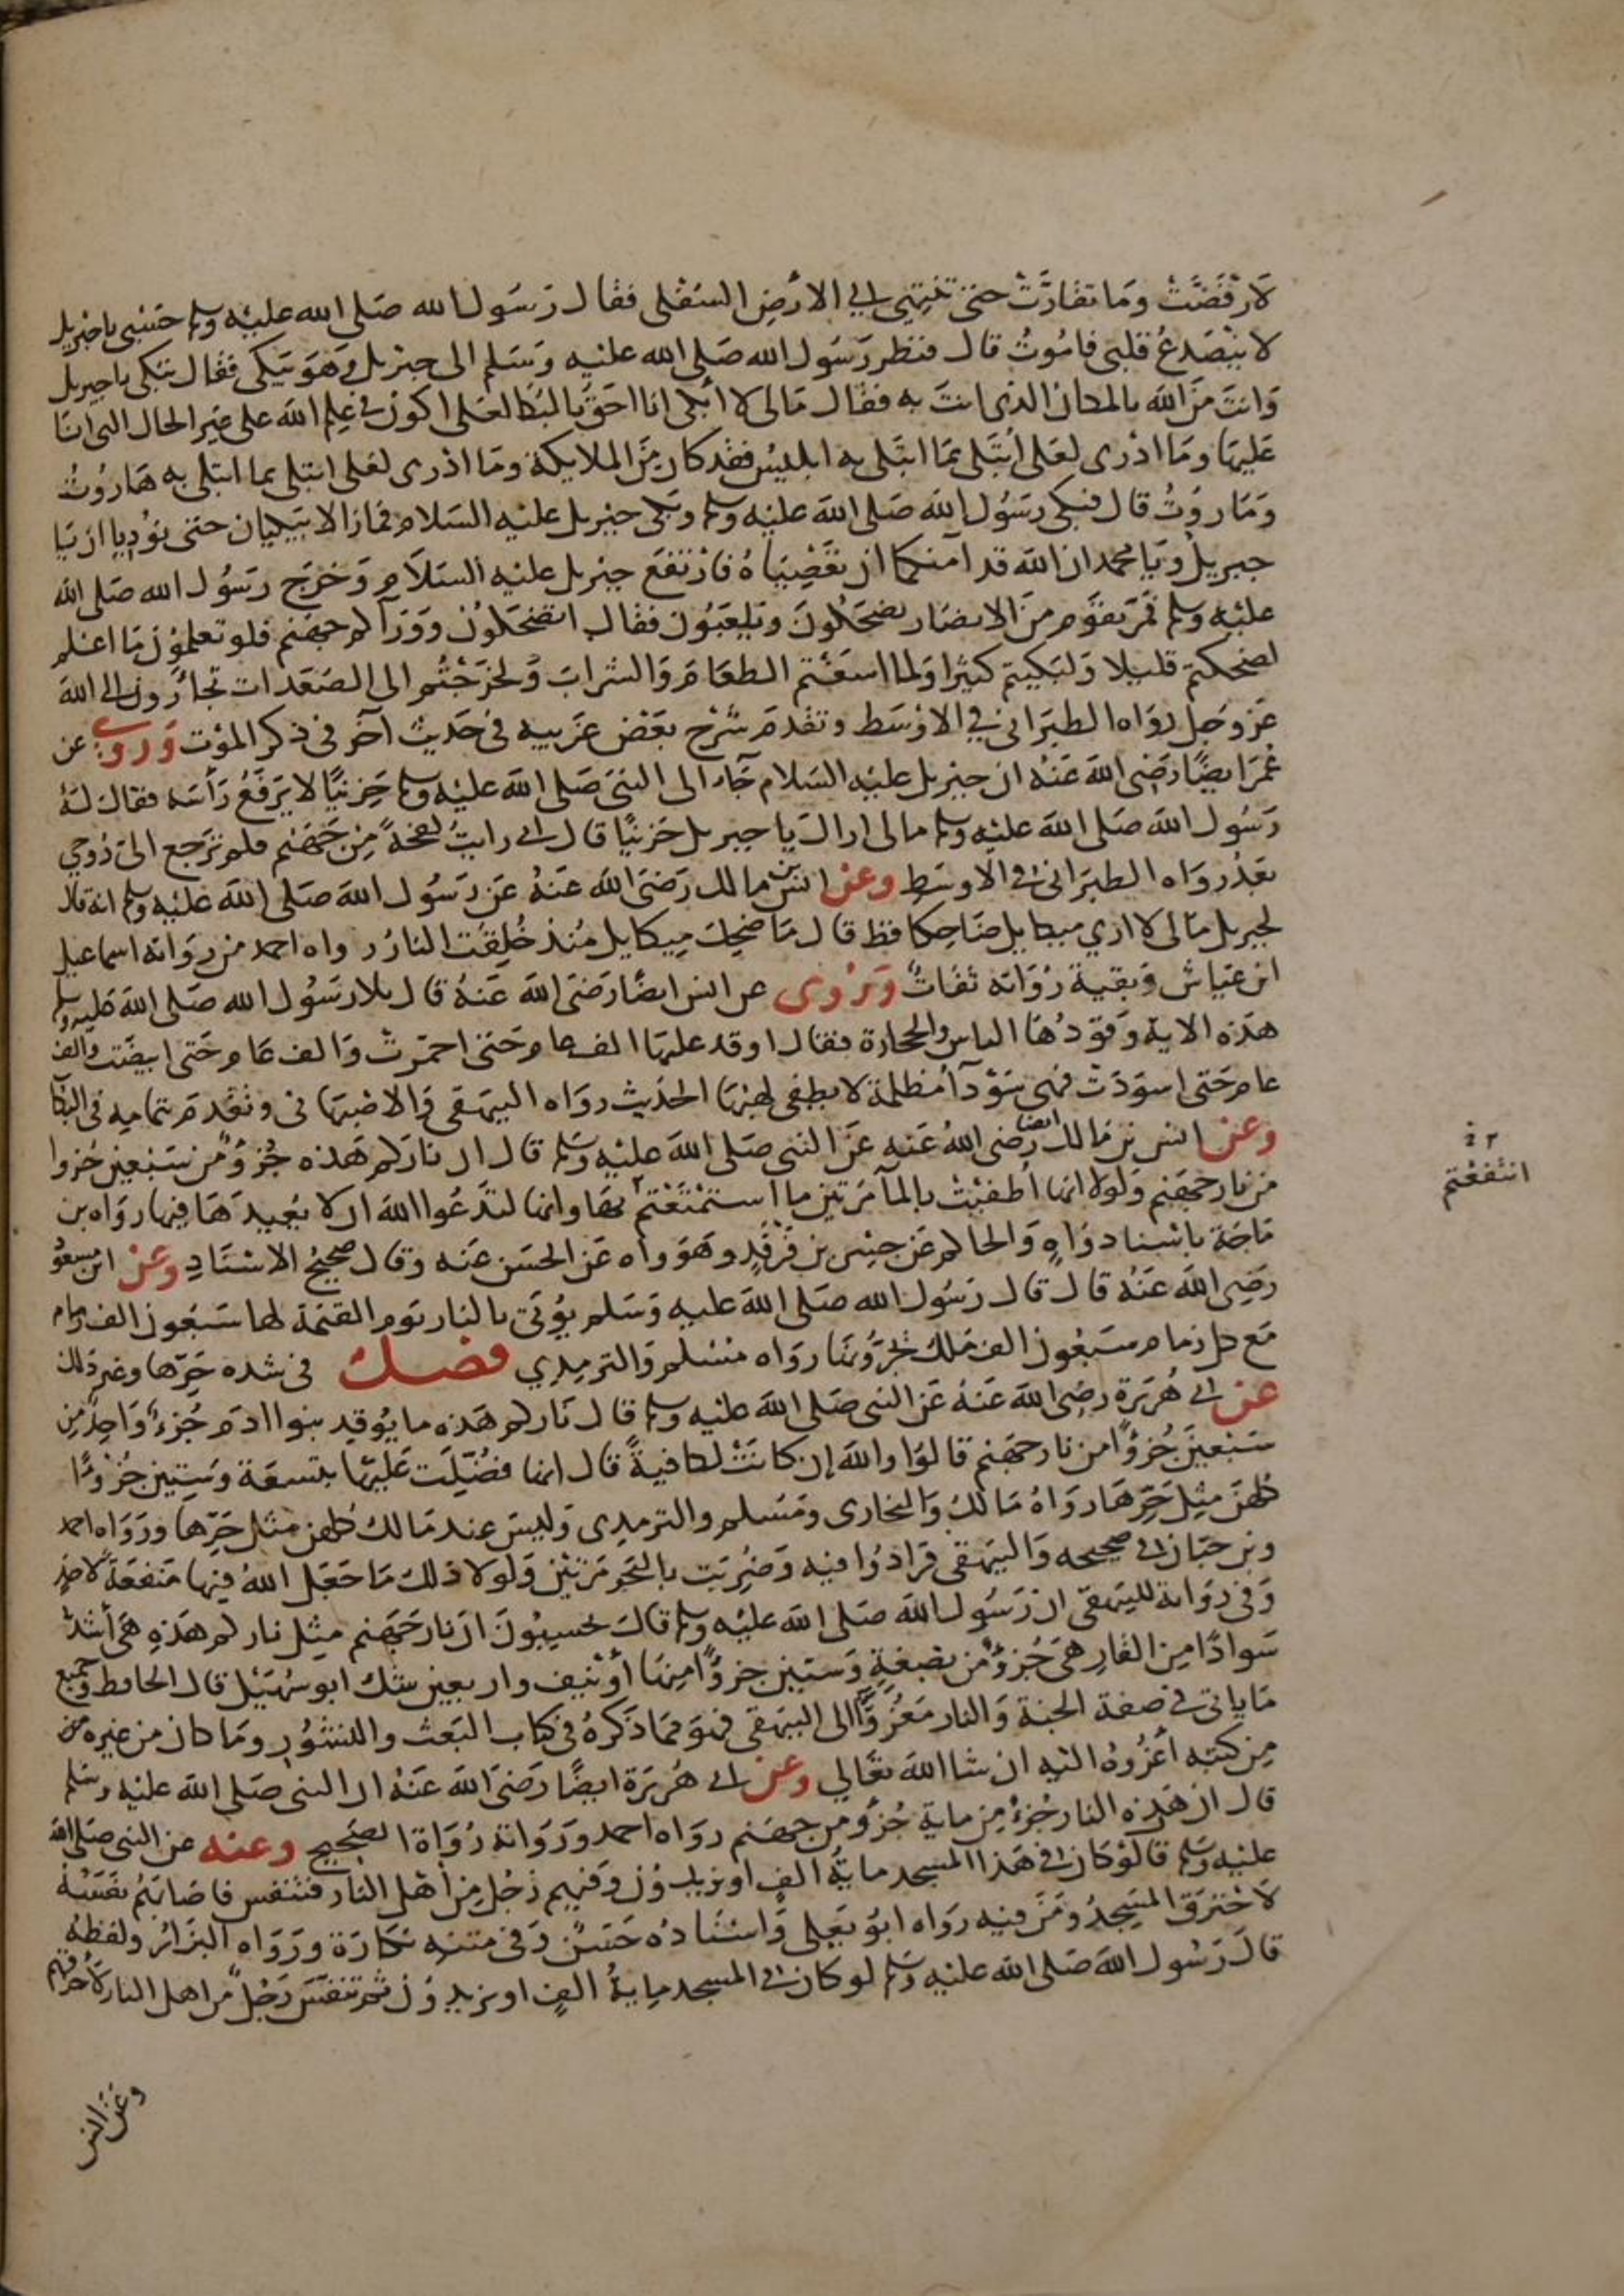 لارفضت وما تقادت حتى تنتهي الى الارض السفلى فقال رسول الله صلى الله عليه وسلم حسبي يا جبريل
لا ينصدع قلبي فاموت قال فنظر رسول الله صلى الله عليه وسلم الى جبريل وهو يبكى فقال تبكى يا جبريل
وانت من الله بالمكان الذى انت به فقال مالى لا ابكى انا احق بالبكا لعلى اكون فى علم الله على غير الحال التى انا
عليها وما ادرى لعلى ابتلى بما ابتلى به ابليس فقد كان من الملايكة وما ادرى لعلى ابتلى بما ابتلى به هاروت
وماروت قال فبكى رسول الله صلى الله عليه وسلم وبكى جبريل عليه السلام فمازالا يبكيان حتى نوديا ان يا
جبريل ويا محمد ان الله قد آمنكما ان تغضباه فارتفع جبريل عليه السلام وخرج رسول الله صلى الله
عليه وسلم فمر بقوم من الانصار يضحكون ويلعبون فقال اتضحكون ووراكم جهنم فلو تعلمون ما اعلم
لضحكتم قليلا ولبكيتم كثيرا ولما اسغتم الطعام والشراب ولخرجتم الى الصعدات تجأرون الى الله
عز وجل رواه الطبرانى فى الاوسط وتقدم شرح بعض غريبه فى حديث آخر فى ذكر الموت وروى عن
عمر ايضا رضى الله عنه ان جبريل عليه السلام جاء الى النبى صلى الله عليه وسلم حزينا لا يرفع رأسه فقال له
رسول الله صلى الله عليه وسلم مالى اراك يا جبريل حزينا قال انى رايت لفحة من جهنم فلم ترجع الى روحي
بعد رواه الطبرانى فى الاوسط وعن انس بن مالك رضى الله عنه عن رسول الله صلى الله عليه وسلم انه قال
لجبريل مالى لا ارى ميكايل ضاحكا قط قال ما ضحك ميكايل منذ خلقت النار رواه احمد من رواته اسماعيل
ابن عياش وبقية رواته ثقات وروى عن انس ايضا رضى الله عنه قال تلا رسول الله صلى الله عليه وسلم
هذه الاية وقودها الناس والحجارة فقال اوقد عليها الف عام حتى احمرت والف عام حتى ابيضت والف
عام حتى اسودت فهى سودآ مظلمة لا يطفى لهبها الحديث رواه البيهقى والاصبهانى وتقدم بتمامه فى البكا
وعن انس بن مالك ايضا رضى الله عنه عن النبى صلى الله عليه وسلم قال ان ناركم هذه جزؤ من سبعين جزوا
من نار جهنم ولولا انها أطفيت بالمآ مرتين ما استمتعتم بها وانها لتدعوا الله ان لا يعيدها فيها رواه بن
ماجة باسناد واه والحاكم عن جسر بن فرقد وهو واه عن الحسن عنه وقال صحيح الاسناد وعن ابن مسعود
رضى الله عنه قال قال رسول الله صلى الله عليه وسلم يؤتى بالنار يوم القيمة لها سبعون الف زمام
مع كل زمام سبعون الف ملك يجرونها رواه مسلم والترمذي فصل فى شدة حرها وغير ذلك
عن ابى هريرة رضى الله عنه عن النبى صلى الله عليه وسلم قال ناركم هذه ما يوقد بنوا ادم جزء واحد من
سبعين جزؤا من نار جهنم قالوا والله إن كانت لكافية قال انها فضلت عليها بتسعة وستين جزوءا
كلهن مثل حرها رواه مالك والبخارى ومسلم والترمذى وليس عند مالك كلهن مثل حرها ورواه احمد
وبن حبان فى صحيحه والبيهقى فزادوا فيه وضربت بالبحر مرتين ولولا ذلك ما جعل الله فيها منفعة لاحد
وفى رواية للبيهقى ان رسول الله صلى الله عليه وسلم قال تحسبون ان نار جهنم مثل ناركم هذه هى أشد
سوادا من القار هى جزؤ من بضعة وستين جزؤا منها أو نيف واربعين شك ابو سهيل قال الحافظ وجميع
ما ياتى فى صفة الجنة والنار معزوا الى البيهقى فهو مما ذكره فى كتاب البعث والنشور وما كان من غيره من
من كتبه أعزوه اليه ان شا الله تعالى وعن ابى هريرة ايضا رضى الله عنه ان النبى صلى الله عليه وسلم
قال ان هذه النار جزء من ماية جزؤ من جهنم رواه احمد ورواته رواة الصحيح وعنه عن النبى صلى الله
عليه وسلم قال لو كان فى هذا المسجد ماية الف او يزيدون وفيهم رجل من أهل النار فتنفس فاصابهم نفسه
لاحترق المسجد ومن فيه رواه ابو يعلى واسناده حسن وفى متنه نكارة ورواه البزار ولفظه
قال رسول الله صلى الله عليه وسلم لو كان فى المسجد ماية الف او يزيدون ثم تنفس رجل من اهل النار لأحرقهم
انتفعتم
وعن انس